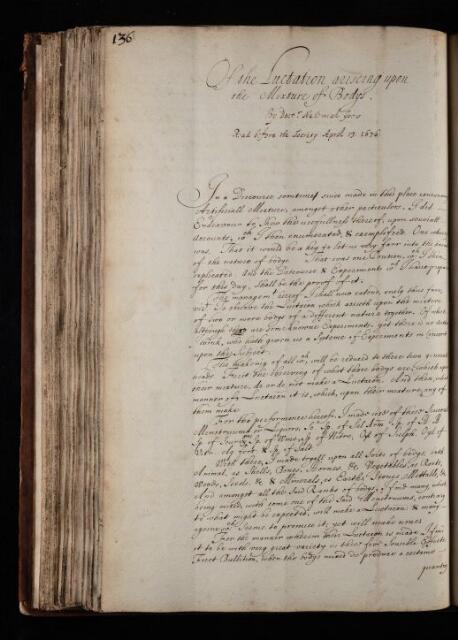 136
Of the Luctation arising upon
the Mixture of Bodys.
By Doctr. Nehemiah Grew
Read before the Society April 13 1676
In a Discourse sometimes since made in this place concerning
Artificiall Mixture, amongst other particulars, I did
Endeavour to shew the usefullness thereof, upon severall
accounts, wch I then enumerated, & exemplified. One where
was. That it would be a key to let us very farr into the
of the nature of bodys. That was one Caution, wch I then
replicated. and the Discourse & Experiments wch I have
for this day, shall be the proof of it.
The managemt. hereof I shall now extend, only thus farr,
vizt. To observe the Luctation, wch ariseth upon the mixture
of two or more bodys of a different nature together. Of which
although there are some knowne Experiments, yet there is no Author
I think, who hath given us a Systeme of Experiments
upon the Subject.
The making of all wch, will be reduced to these two generall
heads. First the observing of what those bodys are, which upon
their mixture, do or do not make a Luctation. And then, what
manner of Luctation it is, which, upon their mixture, any of
them make.
For the performance hereof, I made use of these severall
Menstruums or Liquors, Sc.
With these, I made tryall upon all sorts of bodys, both
Animal, as Shells, Bones, Hornes, &c. Vegetables, as Roots,
Woods, Seeds, &c. & Minerals, as Earths, Stones, Mettalls, &c.
And amongst all the said Ranks of bodys, I find many, which
being mixed, with some one of the said Menstruums, contrary
to what might be expected, will make a Luctation: & many
againe, wch seeme to promise it, yet will make none.
For the manner wherein this Luctation is made, I find
it to be with very great variety
First Bullition, when the bodys mixed do produce a certaine
quantity